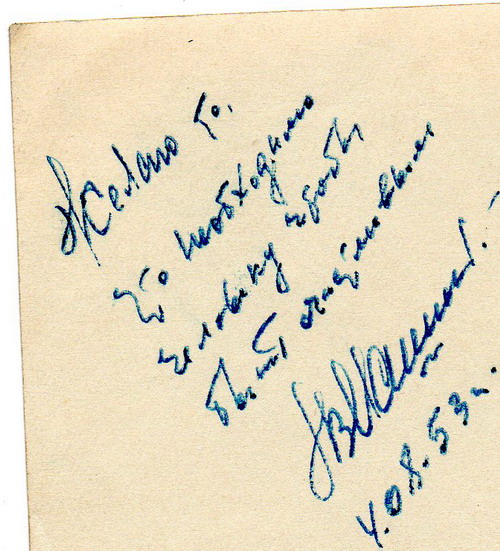 Желаю то,
что необходимо
человеку чтобы
быть счастливым
4.08.53г.